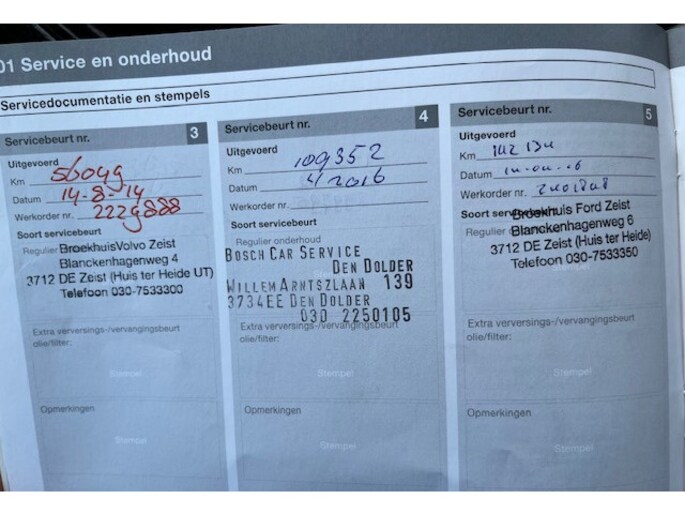 01 Service en onderhoud
Servicedocumentatie en stempels
Servicebeurt nr. 3
Uitgevoerd
Km 56049
Datum 14-8-14
Werkorder nr. 2229888
Soort servicebeurt
Regulier
BroekhuisVolvo Zeist
Blanckenhagenweg 4
3712 DE Zeist (Huis ter Heide UT)
Telefoon 030-7533300
Extra verversings-/vervangingsbeurt
olie/filter:
Stempel
Opmerkingen
Stempel
Servicebeurt nr. 4
Uitgevoerd
Km 109352
Datum 4/2016
Werkorder nr.
Soort servicebeurt
Regulier onderhoud
BOSCH CAR SERVICE
DEN DOLDER
WILLEM ARNTSZLAAN 139
3734EE DEN DOLDER
030 2250105
Extra verversings-/vervangingsbeurt
olie/filter:
Stempel
Opmerkingen
Stempel
Servicebeurt nr. 5
Uitgevoerd
Km
Datum
Werkorder nr.
Soort
Broekhuis Ford Zeist
Blanckenhagenweg 6
3712 DE Zeist (Huis ter Heide)
Telefoon 030-7533350
Extra verversings-/vervangingsbeurt
olie/filter:
Stempel
Opmerkingen
Stempel